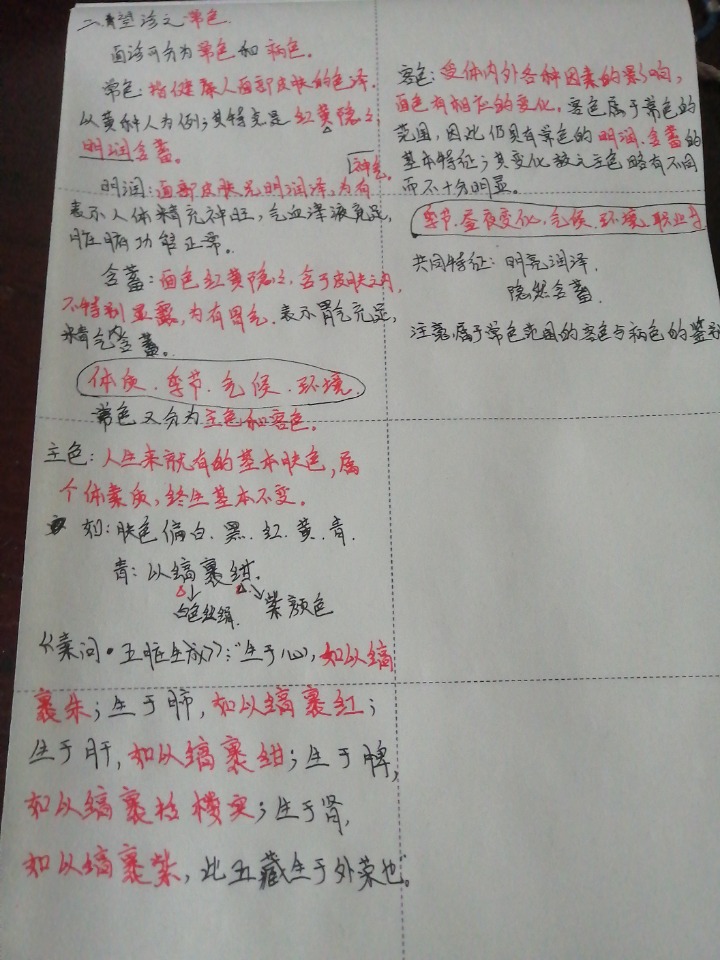 二、望诊之常色.
面诊可分为常色和病色。
常色:指健康人面部皮肤的色泽.
以黄种人为例;其特克是红黄隐隐,
明润含蓄。
明润:面部皮肤光明润泽,为有神气.
表示人体精充神旺,气血津液充足,
脏腑功能正常。
含蓄:面色红黄隐隐,含于皮肤之内,
不特别显露,为有胃气.表示胃气充足,
精气内含蓄。
体质.季节.气候.环境.
常色又分为主色和客色。
主色:人生来就有的基本肤色,属
个体素质,终生基本不变。
如:肤色偏白.黑.红.黄.青.
青:以缟裹绀.
白色丝绢. 紫颜色
《素问·五脏生成》:"生于心,如以缟
裹朱;生于肺,如以缟裹红;
生于肝,如以缟裹绀;生于脾,
如以缟裹栝楼实;生于肾,
如以缟裹紫,此五藏生于外荣也。
客色:受体内外各种因素的影响,
面色有相应的变化。客色属于常色的
范围,因此仍具有常色的明润.含蓄的
基本特征;其变化较之主色略有不同
而不十分明显。
季节.昼夜变化.气候.环境.职业
共同特征:明亮润泽.
隐然含蓄.
注意属于常色范围的客色与病色的鉴别